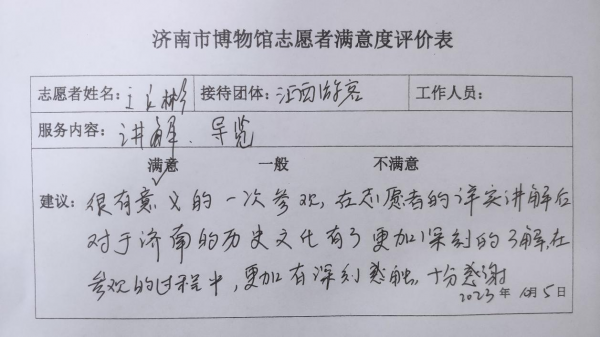 济南市博物馆志愿者满意度评价表
志愿者姓名：王文彬 接待团体：江西游客 工作人员：
服务内容：讲解、导览
满意 一般 不满意
建议：很有意义的一次参观，在志愿者的详实讲解后
对于济南的历史文化有了更加深刻的了解，在
参观的过程中，更加有深刻感触，十分感谢
2023年 10月5日